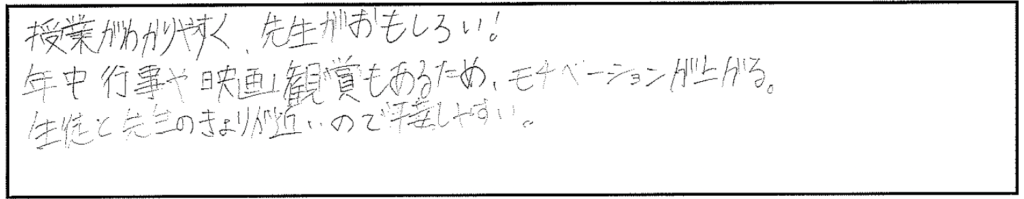 授業がわかりやすく、先生がおもしろい!
年中行事や映画観賞もあるため、モチベーションが上がる。
生徒と先生のきょりが近いので授業しやすい。